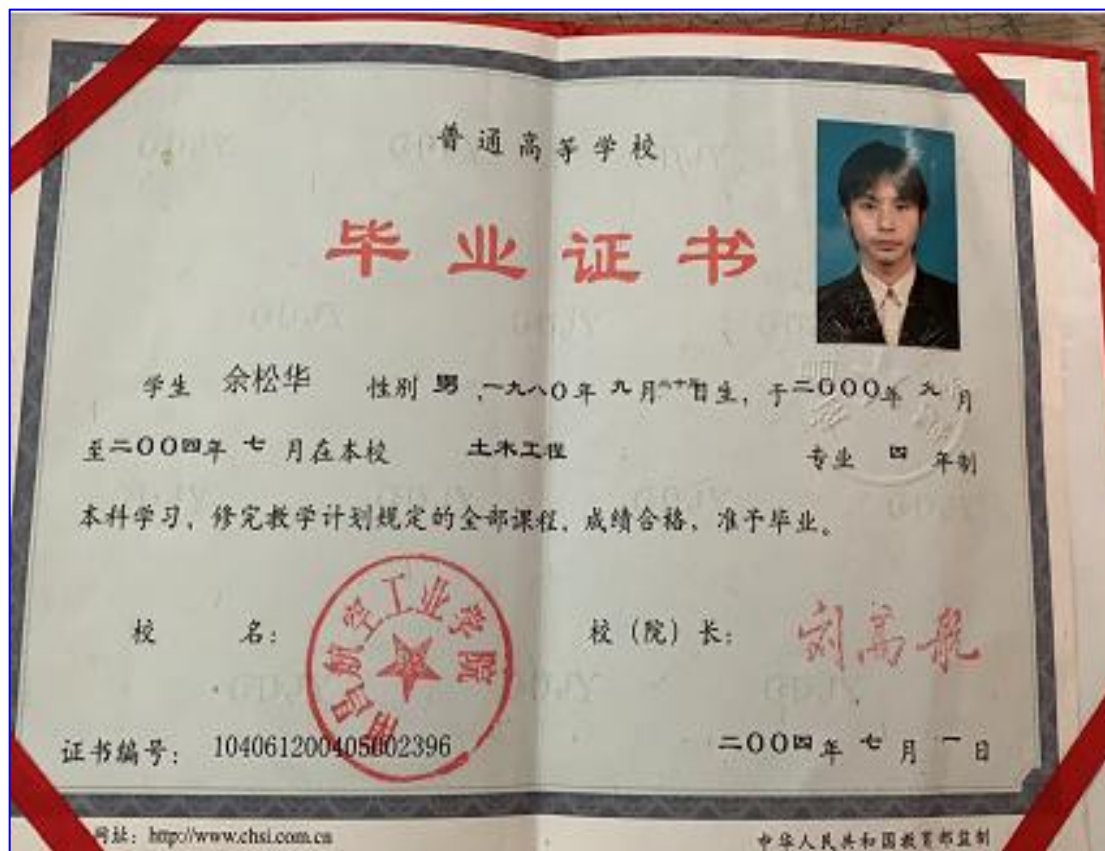 普通高等学校
毕业证书
学生 余松华 性别 男，一九八〇年 九月 日生，于二〇〇〇年 九 月
至二〇〇四年 七 月在本校 土木工程 专业 四 年制
本科学习，修完教学计划规定的全部课程，成绩合格，准予毕业。
校 名：
南昌航空工业学院
校（院）长：
刘高航
证书编号： 104061200405002396
二〇〇四年 七 月 一 日
网址：http://www.chsi.com.cn
中华人民共和国教育部监制